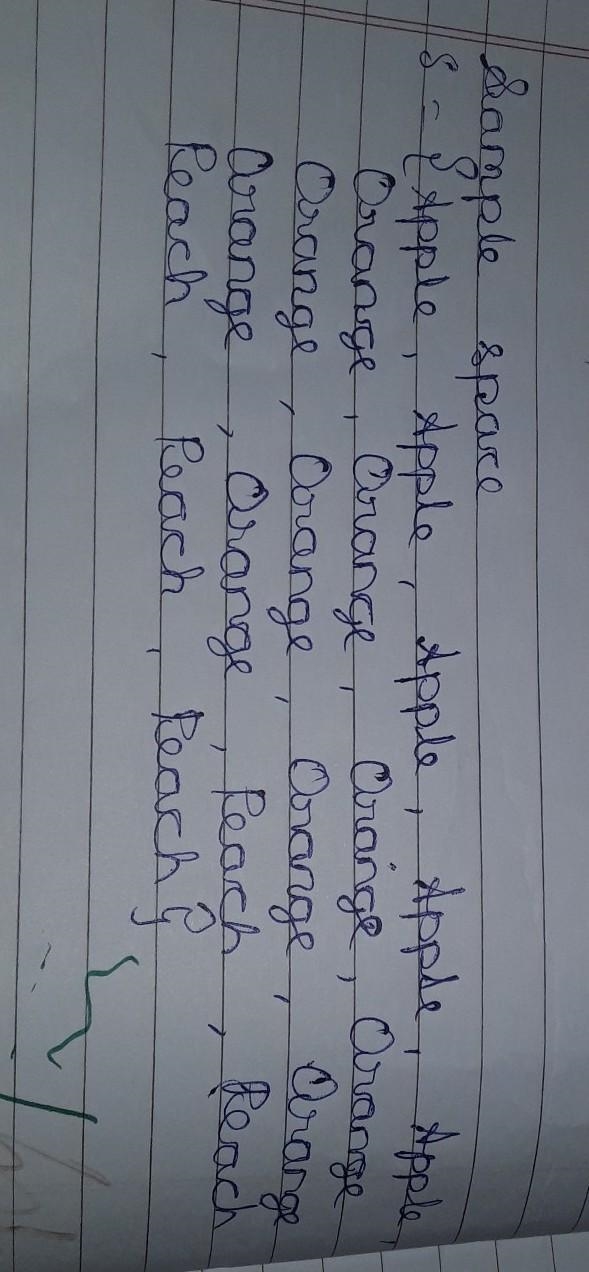 Sample space
S = {Apple, Apple, Apple, Apple, Apple,
Orange, Orange, Orange, Orange
Orange, Orange, Orange, Orange
Orange, Orange, Peach, Peach
Peach, Peach, Peach}